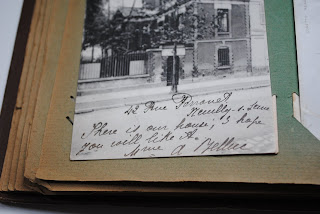 42 Rue Perronet
Neuilly-s-Seine
There is our house; I hope
you will like it.
Mme A